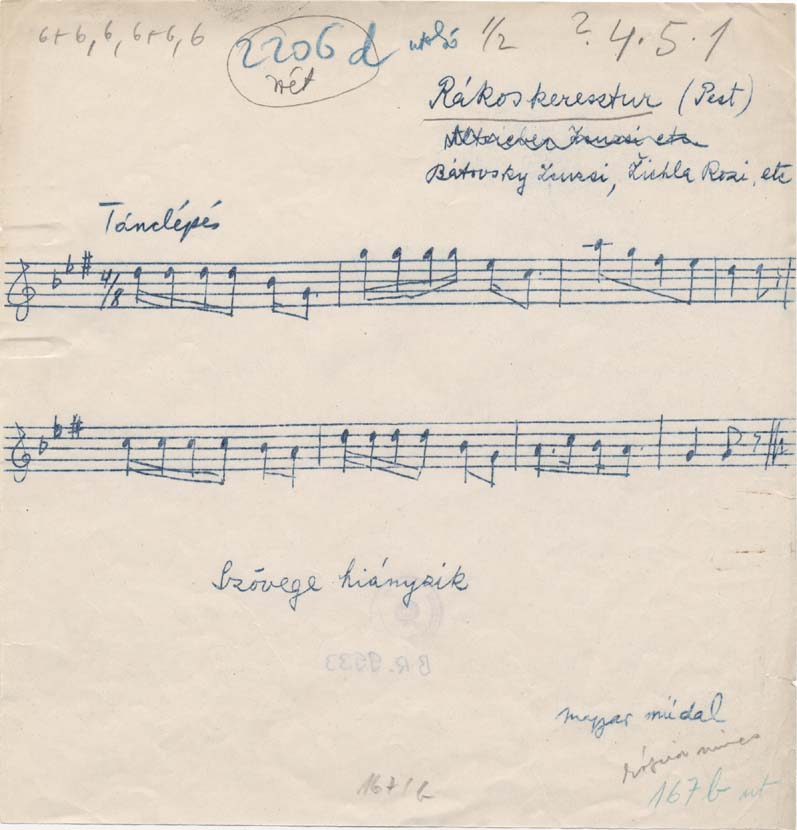 6+6, 6, 6+6, 6
2206 d utolsó 1/2 ? 4.5.1
Rákoskeresztur (Pest)
Bátovsky Zsuzsi, Žichla Rozi, etc
Tánclépés
4/8
Szövege hiányzik
B.R. 9533
magyar műdal
nincs
167/b
167 b ut